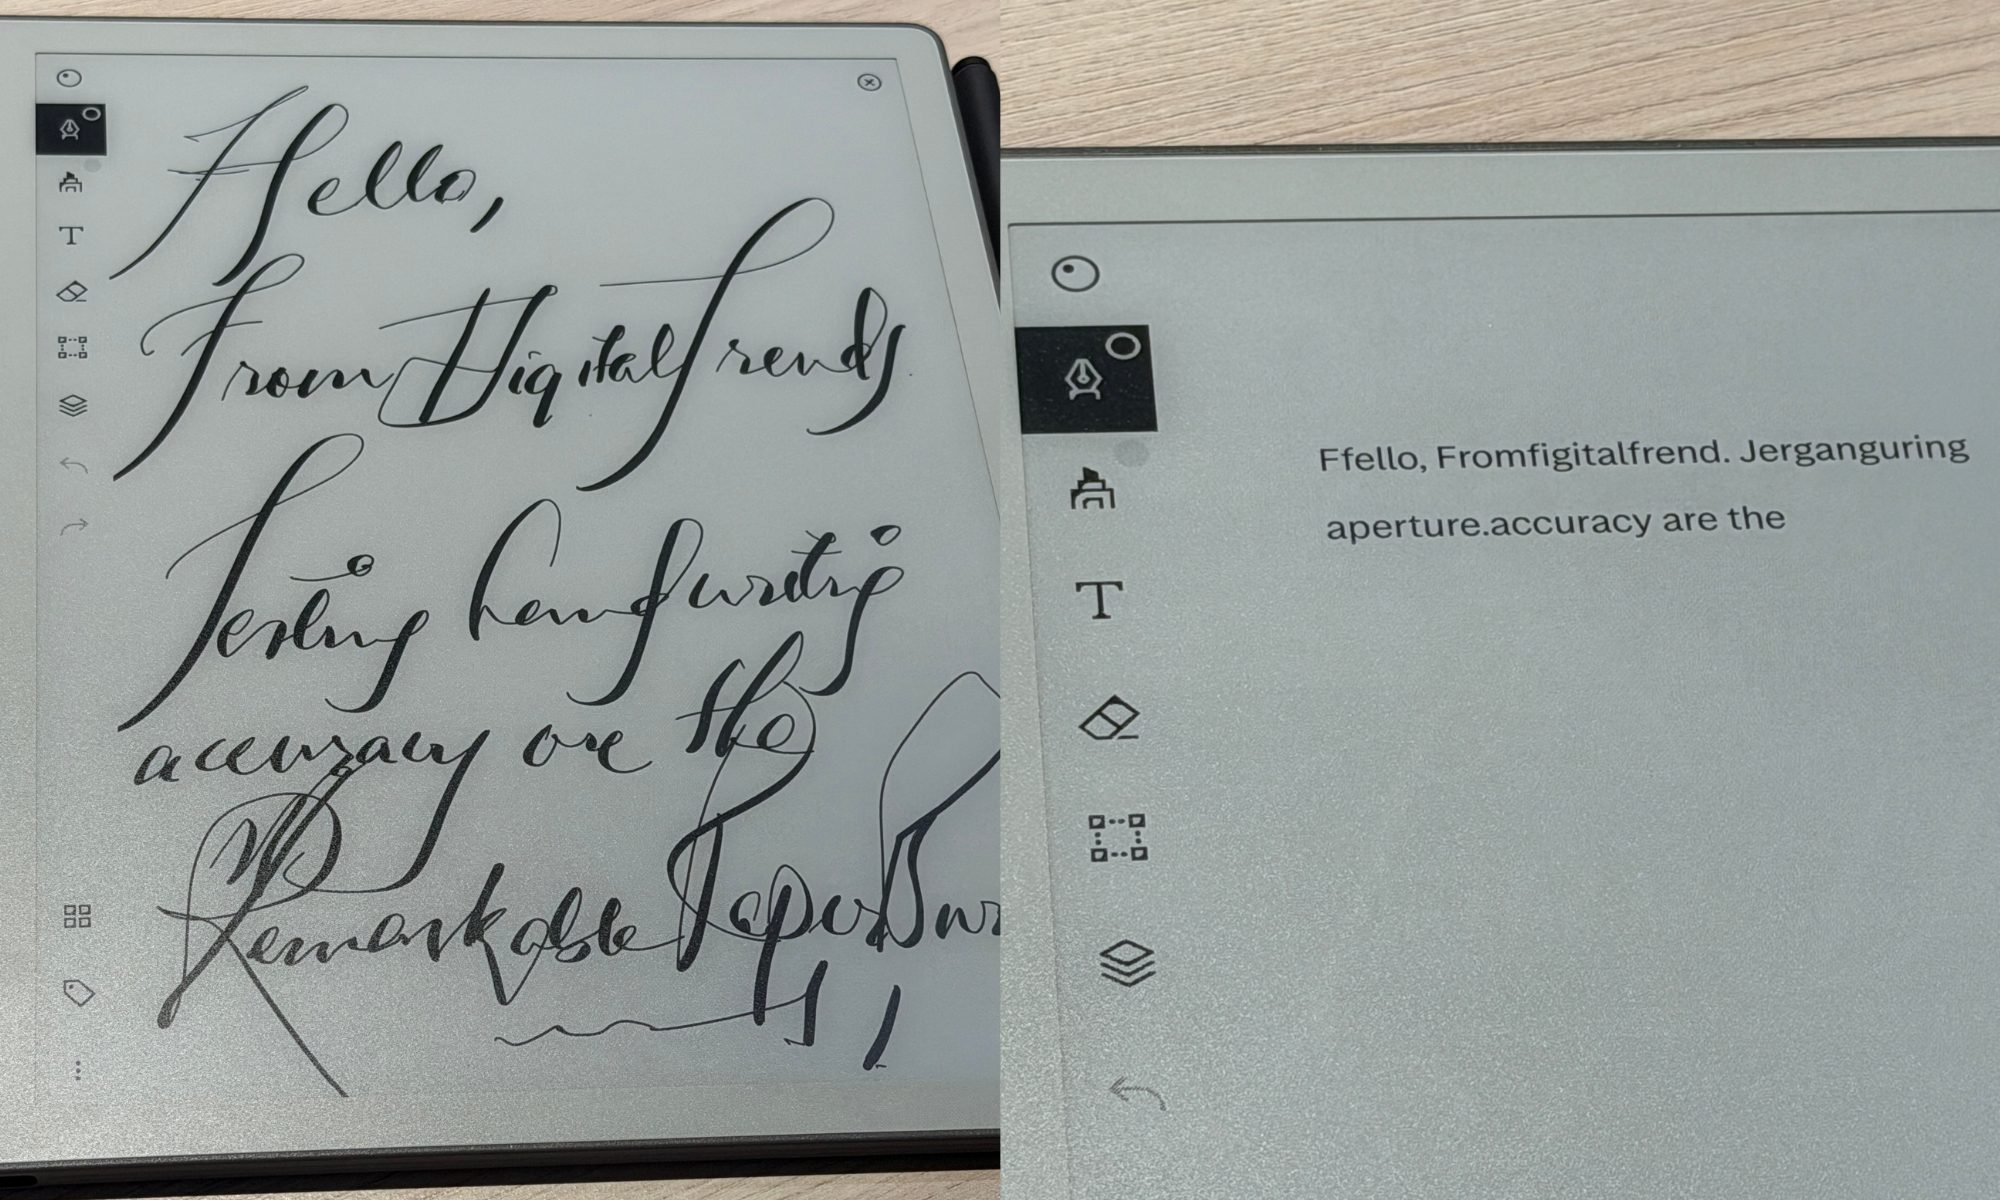 Hello,
From DigitalTrends
Testing handwriting
accuracy on the
Remarkable Paper
T
Ffello, Fromfigitalfrend. Jerganguring
aperture.accuracy are the
T